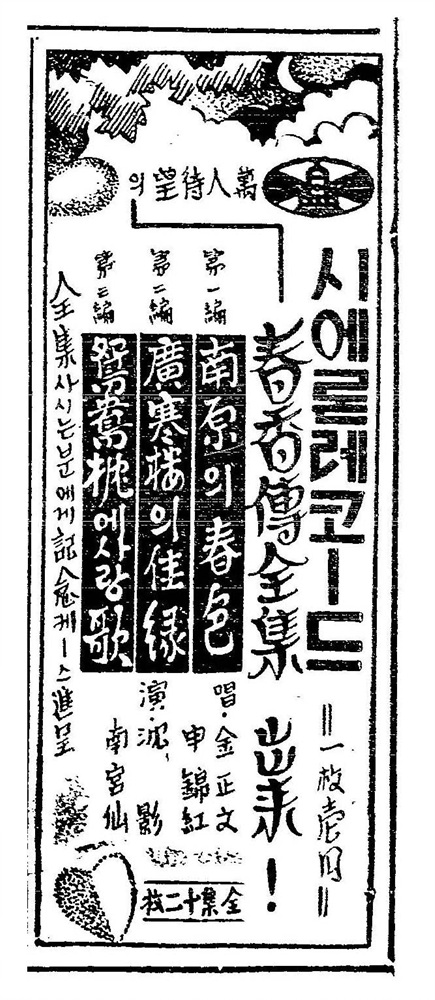 萬人待望의
시에론레코ー드
=一枚壱円=
春香傳全集 出来!
第一編 南原의春色
第二編 廣寒楼의佳緣
第三編 鴛鴦枕에사랑歌
唱·金正文
申錦紅
演·沈影
南宮仙
全集十二枚
全集사시는분에게記念케ー스進呈